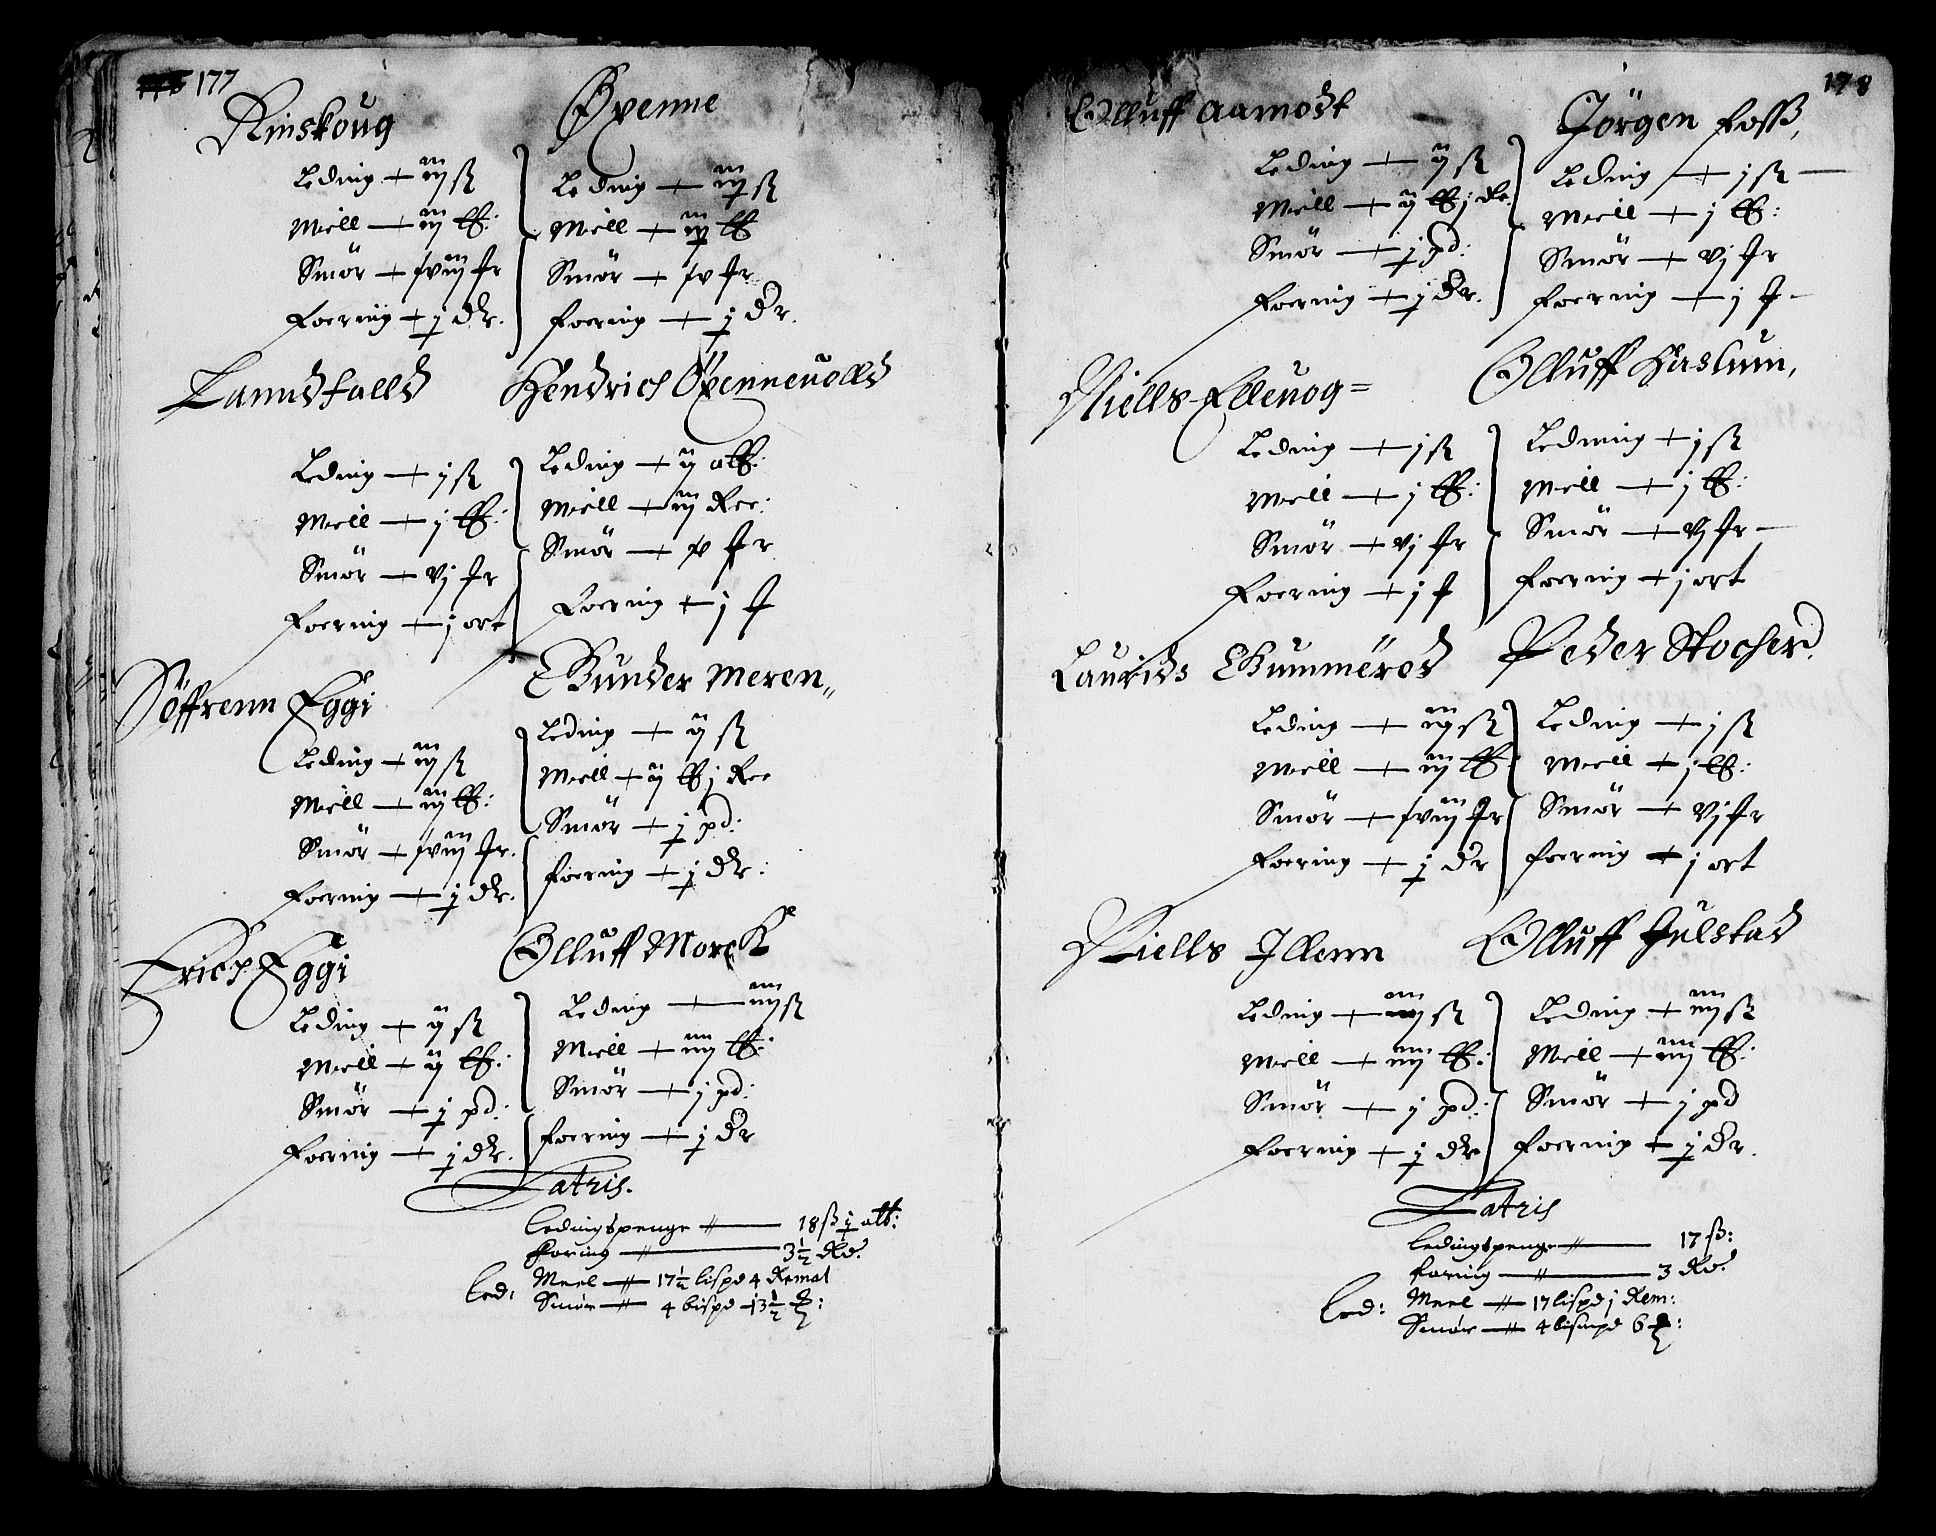 177
Rinskoug
Leding + iij ß
Miell + iij ℔:
Smör + xviij Jr
Foering + j dr.
Øxenne
Leding + iij ß
Miell + iij ℔
Smör + xv Jr
foering + j dr.
Landfalld
Leding + j ß
Miell + j ℔:
Smör + vj Jr
Foering + j ort
Hendrich Öxenneuolld
Leding + ij alb:
Miell + iij Ree:
Smör + Jr
Foering + j
Söffrenn Eggi
Leding + iij ß
Miell + iij ℔:
Smör + xviij Jr.
Foering + j dr.
Gunder Meren„
Leding + ij ß
Miell + ij ℔ j Ree
Smör + j pd:
foering + j dr:
Erich Eggi
Leding + ij ß
Miell + ij ℔:
Smör + j pd:
Foering + j dr.
Olluff Morck
Leding + iiij ß
Miell + iiij ℔:
Smör + j pd:
foering + j dr
Latris.
Ledingspenge 18 ß j alb:
Foring 3½ Rd.
Led:
Meel 17½ lispd 4 Remal
Smör 4 bispd 13½
178
Olluff Aamodt
Leding + ij ß
Miell + ij ℔ j Re.
Smör + j pd:
Foering + j dr.
Jörgen Foss,
Leding + j ß
Miell + j ℔:
Smör + vj Jr
foering + j
Niells Elleuog=
Leding + j ß
Miell + j ℔:
Smör + vj Jr
Foering + j
Olluff Haslum,
Leding + j ß
Miell + j ℔:
Smör + vj Jr
foering + j ort
Laurids Gummeröd
Leding + iij ß
Miell + iij ℔
Smör + xviij Jr
Foering + j dr
Peder Stocherd.
Leding + j ß
Miell + j ℔:
Smör + vj Jr
foering + j ort
Niells Jllenn
Leding + iiij ß
Miell + iiij ℔:
Smör + j pd:
Foering + j dr
Olluff Julstad
Leding + iiij ß
Miell + iiij ℔:
Smör + j pd
foering + j dr.
Latris
Ledingspenge 17 ß:
foring 3 Rd.
Led:
Meel 17 lispd j Rem:
Smör 4 bismpd 6